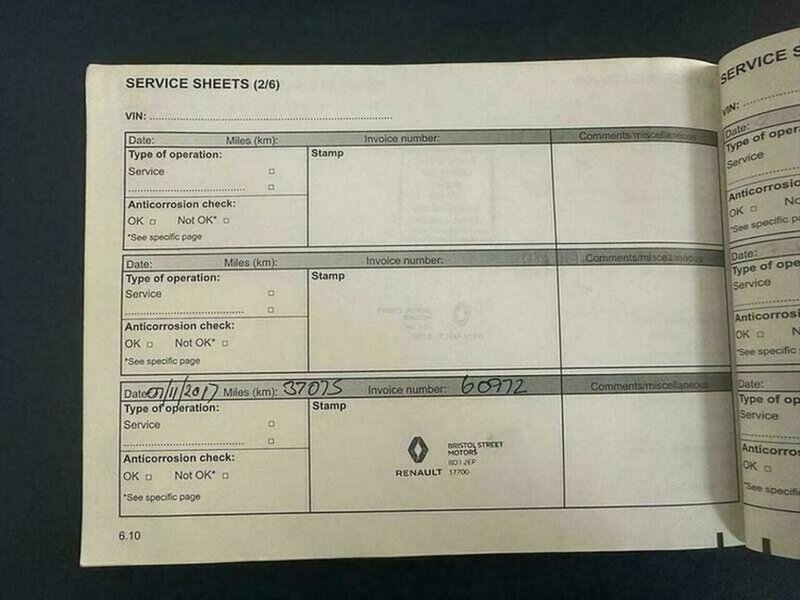 SERVICE SHEETS (2/6)
VIN:
Date: Miles (km): Invoice number: Comments/miscellaneous
Type of operation: Stamp
Service
Anticorrosion check:
OK Not OK*
*See specific page
Date: Miles (km): Invoice number: Comments/miscellaneous
Type of operation: Stamp
Service
Anticorrosion check:
OK Not OK*
*See specific page
Date: 07/11/2017 Miles (km): 37075 Invoice number: 60972 Comments/miscellaneous
Type of operation: Stamp
Service
BRISTOL STREET
MOTORS
BD1 2EP
RENAULT 37700
Anticorrosion check:
OK Not OK*
*See specific page
6.10
SERVICE S
VIN:
Date:
Type of opera
Service
Anticorrosion
OK No
*See specific
Date:
Type of op
Service
Anticorros
OK
*See specifi
Date:
Type of op
Service
Anticorros
OK
*See specifi